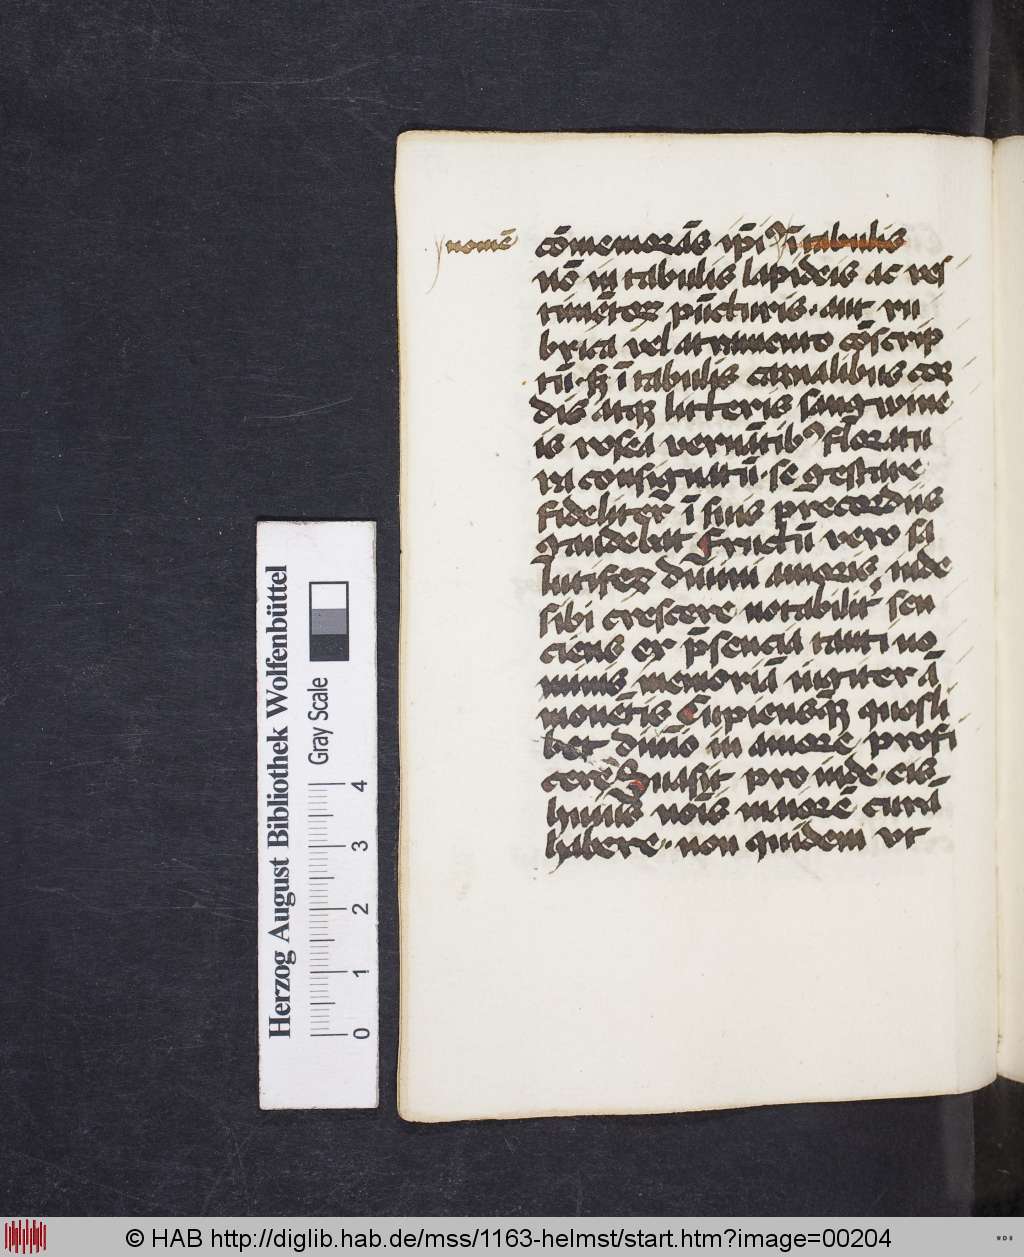 nomē
cōmemorās ip̄i ī tabulis
nō in tabulis lapideis ac ves
timētoꝝ pūcturis · aut ru
brica vel atramento cōscrip
tū · sꝫ ī tabulis carnalibus cor
dis atqꝫ litteris sangwine
is rosea vernātibꝰ floratu
ra consignatū · se gestare
fideliter ī suis precordiis
gaudebat Fructū vero sa
lutifeꝝ diuini amoris inde
sibi crescere notabilit̄ sen
ciens ex p̄sencia tanti no
minis memoriā iugiter ā
monētis Cupiensqꝫ quosli
bet diuīo in amore profi
cere Suasit pro inde eis
huius noīs maiorē curā
habere · non quidem vt
Herzog August Bibliothek Wolfenbüttel
Gray Scale
0 1 2 3 4
© HAB http://diglib.hab.de/mss/1163-helmst/start.htm?image=00204